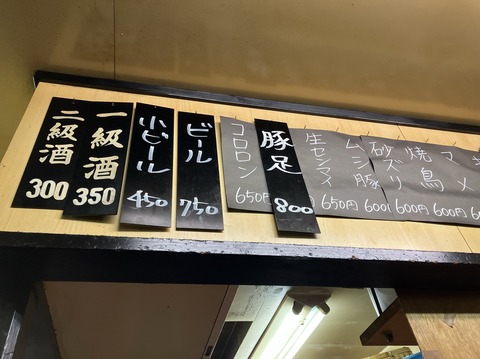 二級酒
300
一級酒
350
小ビール
450
ビール
750
コロロン
650円
豚足
800
生センマイ
650円
ムシ豚
600
砂ズリ
600円
焼鳥
600円
マメ
600円